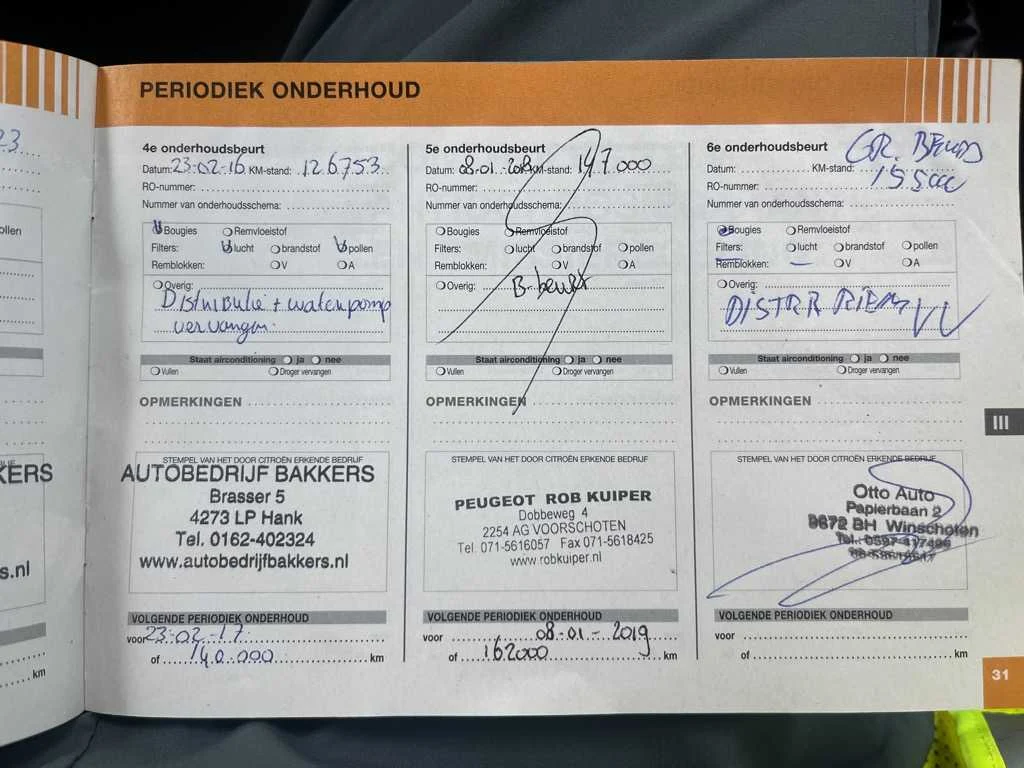 PERIODIEK ONDERHOUD
4e onderhoudsbeurt
Datum: 23-02-16 KM-stand: 126753
RO-nummer:
Nummer van onderhoudsschema:
Bougies Remvloeistof
Filters: lucht brandstof pollen
Remblokken: V A
Overig:
Distributie + waterpomp
vervangen.
Staat airconditioning ja nee
Vullen Droger vervangen
OPMERKINGEN
STEMPEL VAN HET DOOR CITROËN ERKENDE BEDRIJF
AUTOBEDRIJF BAKKERS
Brasser 5
4273 LP Hank
Tel. 0162-402324
www.autobedrijfbakkers.nl
VOLGENDE PERIODIEK ONDERHOUD
voor 23-02-17
of 140.000 km
5e onderhoudsbeurt
Datum: 08-01-2018 KM-stand: 147.000
RO-nummer:
Nummer van onderhoudsschema:
Bougies Remvloeistof
Filters: lucht brandstof pollen
Remblokken: V A
Overig: B-beurt
Staat airconditioning ja nee
Vullen Droger vervangen
OPMERKINGEN
STEMPEL VAN HET DOOR CITROËN ERKENDE BEDRIJF
PEUGEOT ROB KUIPER
Dobbeweg 4
2254 AG VOORSCHOTEN
Tel. 071-5616057 Fax 071-5618425
www.robkuiper.nl
VOLGENDE PERIODIEK ONDERHOUD
voor 08-01-2019
of 162000 km
6e onderhoudsbeurt
GR. BEURT
Datum: KM-stand:
RO-nummer:
Nummer van onderhoudsschema:
Bougies Remvloeistof
Filters: lucht brandstof pollen
Remblokken: V A
Overig:
DISTR RIEM
Staat airconditioning ja nee
Vullen Droger vervangen
OPMERKINGEN
STEMPEL VAN HET DOOR CITROËN ERKENDE BEDRIJF
Otto Auto
Papierbaan 2
9672 BH Winschoten
VOLGENDE PERIODIEK ONDERHOUD
voor
of km
III
31
KERS
s.nl
km